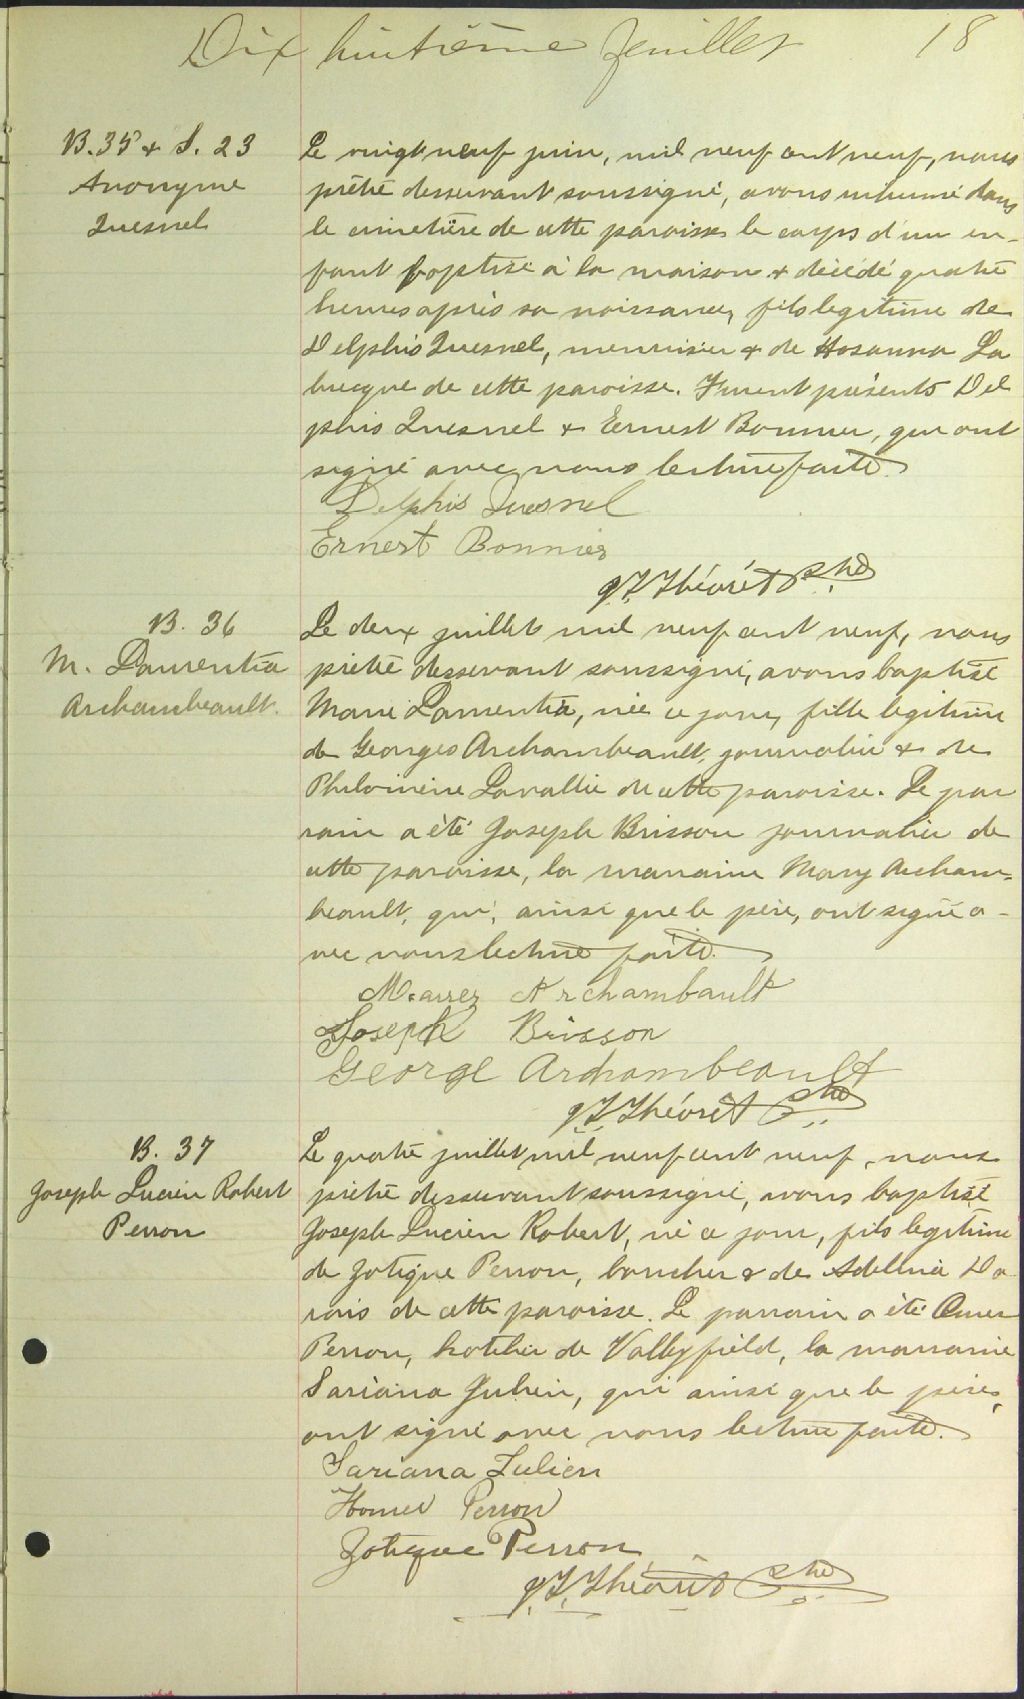 Dix huitième feuillet 18
B. 35 & S. 23
Anonyme
Quesnel
Le vingt neuf juin, mil neuf cent neuf, nous
prêtre desservant soussigné, avons inhumé dans
le cimetière de cette paroisse le corps d'un en-
fant baptisé à la maison & décédé quatre
heures après sa naissance, fils legitime de
Delphis Quesnel, menuisier & de Hosanna La
brecque de cette paroisse. Furent présents Del
phis Quesnel & Ernest Bonnier, qui ont
signé avec nous lecture faite.
Delphis Quesnel
Ernest Bonnier
J. F. Théorêt Ptre
B. 36
M. Laurentia
Archambeault.
Le deux juillet mil neuf cent neuf, nous
prêtre desservant soussigné, avons baptisé
Marie Laurentia, née ce jour, fille legitime
de Georges Archambeault, journalier & de
Philomène Lavallée de cette paroisse. Le par
rain a été Joseph Brisson journalier de
cette paroisse, la marraine Mary Archam-
beault, qui, ainsi que le père, ont signé a-
vec nous lecture faite.
Archambault
Joseph Brisson
George Archambeault
J. F. Théorêt Ptre
B. 37
Joseph Lucien Robert
Perron
Le quatre juillet mil neuf cent neuf, nous
prêtre desservant soussigné, avons baptisé
Joseph Lucien Robert, né ce jour, fils legitime
de Zotique Perron, boucher & de Adellina Da
rais de cette paroisse. Le parrain a été Omer
Perron, hotelier de Valleyfield, la marraine
Sariana Julien, qui ainsi que le père,
ont signé avec nous lecture faite.
Sariana Julien
Homer Perron
Zotique Perron
J. F. Théorêt Ptre